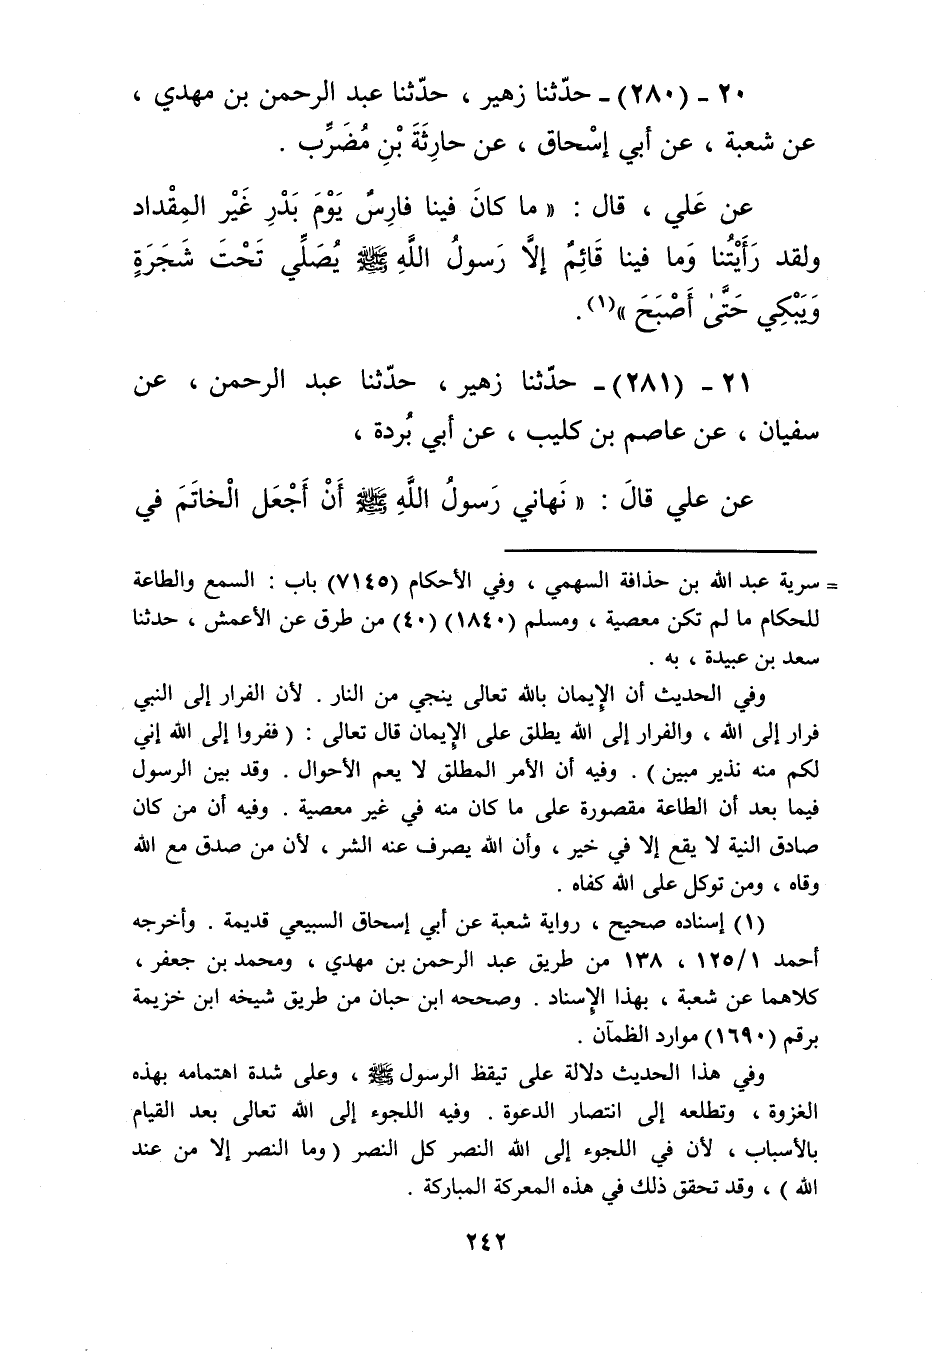 ٢٠ ـ (٢٨٠) ـ حدّثنا زهير ، حدّثنا عبد الرحمن بن مهدي ،
عن شعبة ، عن أبي إسْحاق ، عن حارِثَةَ بْنِ مُضَرِّب .
عن عَلي ، قال : « ما كانَ فينا فارِسٌ يَوْمَ بَدْرِ غَيْر المِقْداد
ولقد رَأَيْتُنا وَما فينا قَائِمٌ إلَّا رَسولُ اللَّهِ ﷺ يُصَلِّي تَحْتَ شَجَرَةٍ
وَيَبْكِي حَتَّىٰ أَصْبَحَ »(١).
٢١ ـ (٢٨١) ـ حدّثنا زهير ، حدّثنا عبد الرحمن ، عن
سفيان ، عن عاصم بن كليب ، عن أبي بُردة ،
عن علي قالَ : « نَهاني رَسولُ اللَّهِ ﷺ أَنْ أَجْعَل الْخاتَمَ في
= سرية عبد الله بن حذافة السهمي ، وفي الأحكام (٧١٤٥) باب : السمع والطاعة
للحكام ما لم تكن معصية ، ومسلم (١٨٤٠) (٤٠) من طرق عن الأعمش ، حدثنا
سعد بن عبيدة ، به .
وفي الحديث أن الإيمان بالله تعالى ينجي من النار . لأن الفرار إلى النبي
فرار إلى الله ، والفرار إلى الله يطلق على الإيمان قال تعالى : ( ففروا إلى الله إني
لكم منه نذير مبين ) . وفيه أن الأمر المطلق لا يعم الأحوال . وقد بين الرسول
فيما بعد أن الطاعة مقصورة على ما كان منه في غير معصية . وفيه أن من كان
صادق النية لا يقع إلا في خير ، وأن الله يصرف عنه الشر ، لأن من صدق مع الله
وقاه ، ومن توكل على الله كفاه .
(١) إسناده صحيح ، رواية شعبة عن أبي إسحاق السبيعي قديمة . وأخرجه
أحمد ١/١٢٥ ، ١٣٨ من طريق عبد الرحمن بن مهدي ، ومحمد بن جعفر ،
كلاهما عن شعبة ، بهذا الإسناد . وصححه ابن حبان من طريق شيخه ابن خزيمة
برقم (١٦٩٠) موارد الظمآن .
وفي هذا الحديث دلالة على تيقظ الرسول ﷺ ، وعلى شدة اهتمامه بهذه
الغزوة ، وتطلعه إلى انتصار الدعوة . وفيه اللجوء إلى الله تعالى بعد القيام
بالأسباب ، لأن في اللجوء إلى الله النصر كل النصر ( وما النصر إلا من عند
الله ) ، وقد تحقق ذلك في هذه المعركة المباركة .
٢٤٢